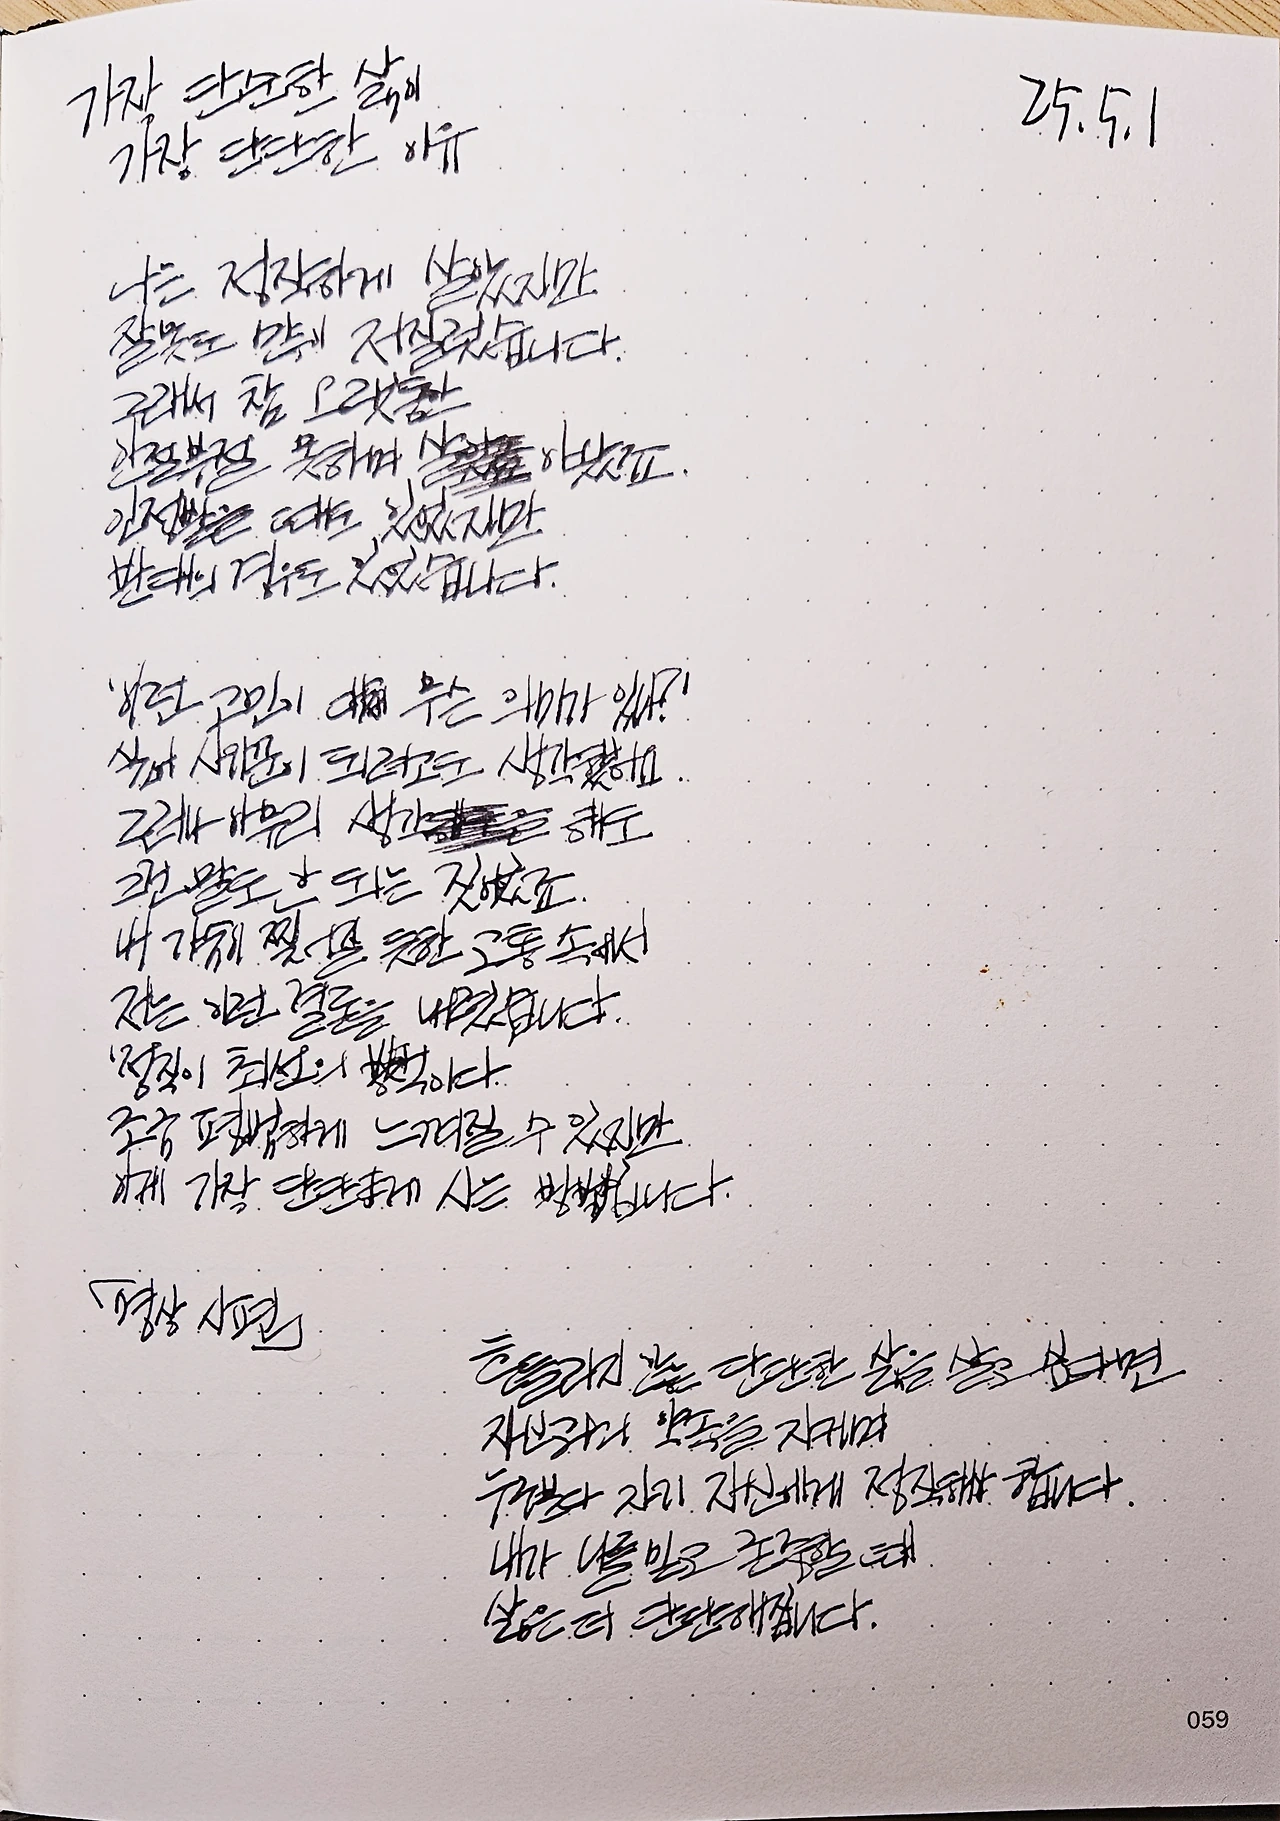 가장 단순한 삶이
가장 단단한 이유
25.5.1
나는 정직하게 살았지만
잘못도 많이 저질렀습니다.
그래서 참 오랫동안
안절부절 못하며 살아왔죠.
인정받을 때도 있었지만
반대의 경우도 있었습니다.
'이런 고민이 대체 무슨 의미가 있나?'
싶어 사기꾼이 되려고도 생각했어요.
그러나 아무리 생각을 해도
그건 말도 안 되는 짓이었죠.
내 가슴이 찢 듯한 고통 속에서
저는 이런 결론을 내렸습니다.
'정직이 최선의 방책이다.
조금 평범하게 느껴질 수 있지만
이게 가장 단단하게 사는 방법입니다.
「명상 사편」
흔들리지 않는 단단한 삶을 살고 싶다면
자신과의 약속을 지키며
누구보다 자기 자신에게 정직해야 합니다.
내가 나를 믿고 존중할 때
삶은 더 단단해집니다.
059